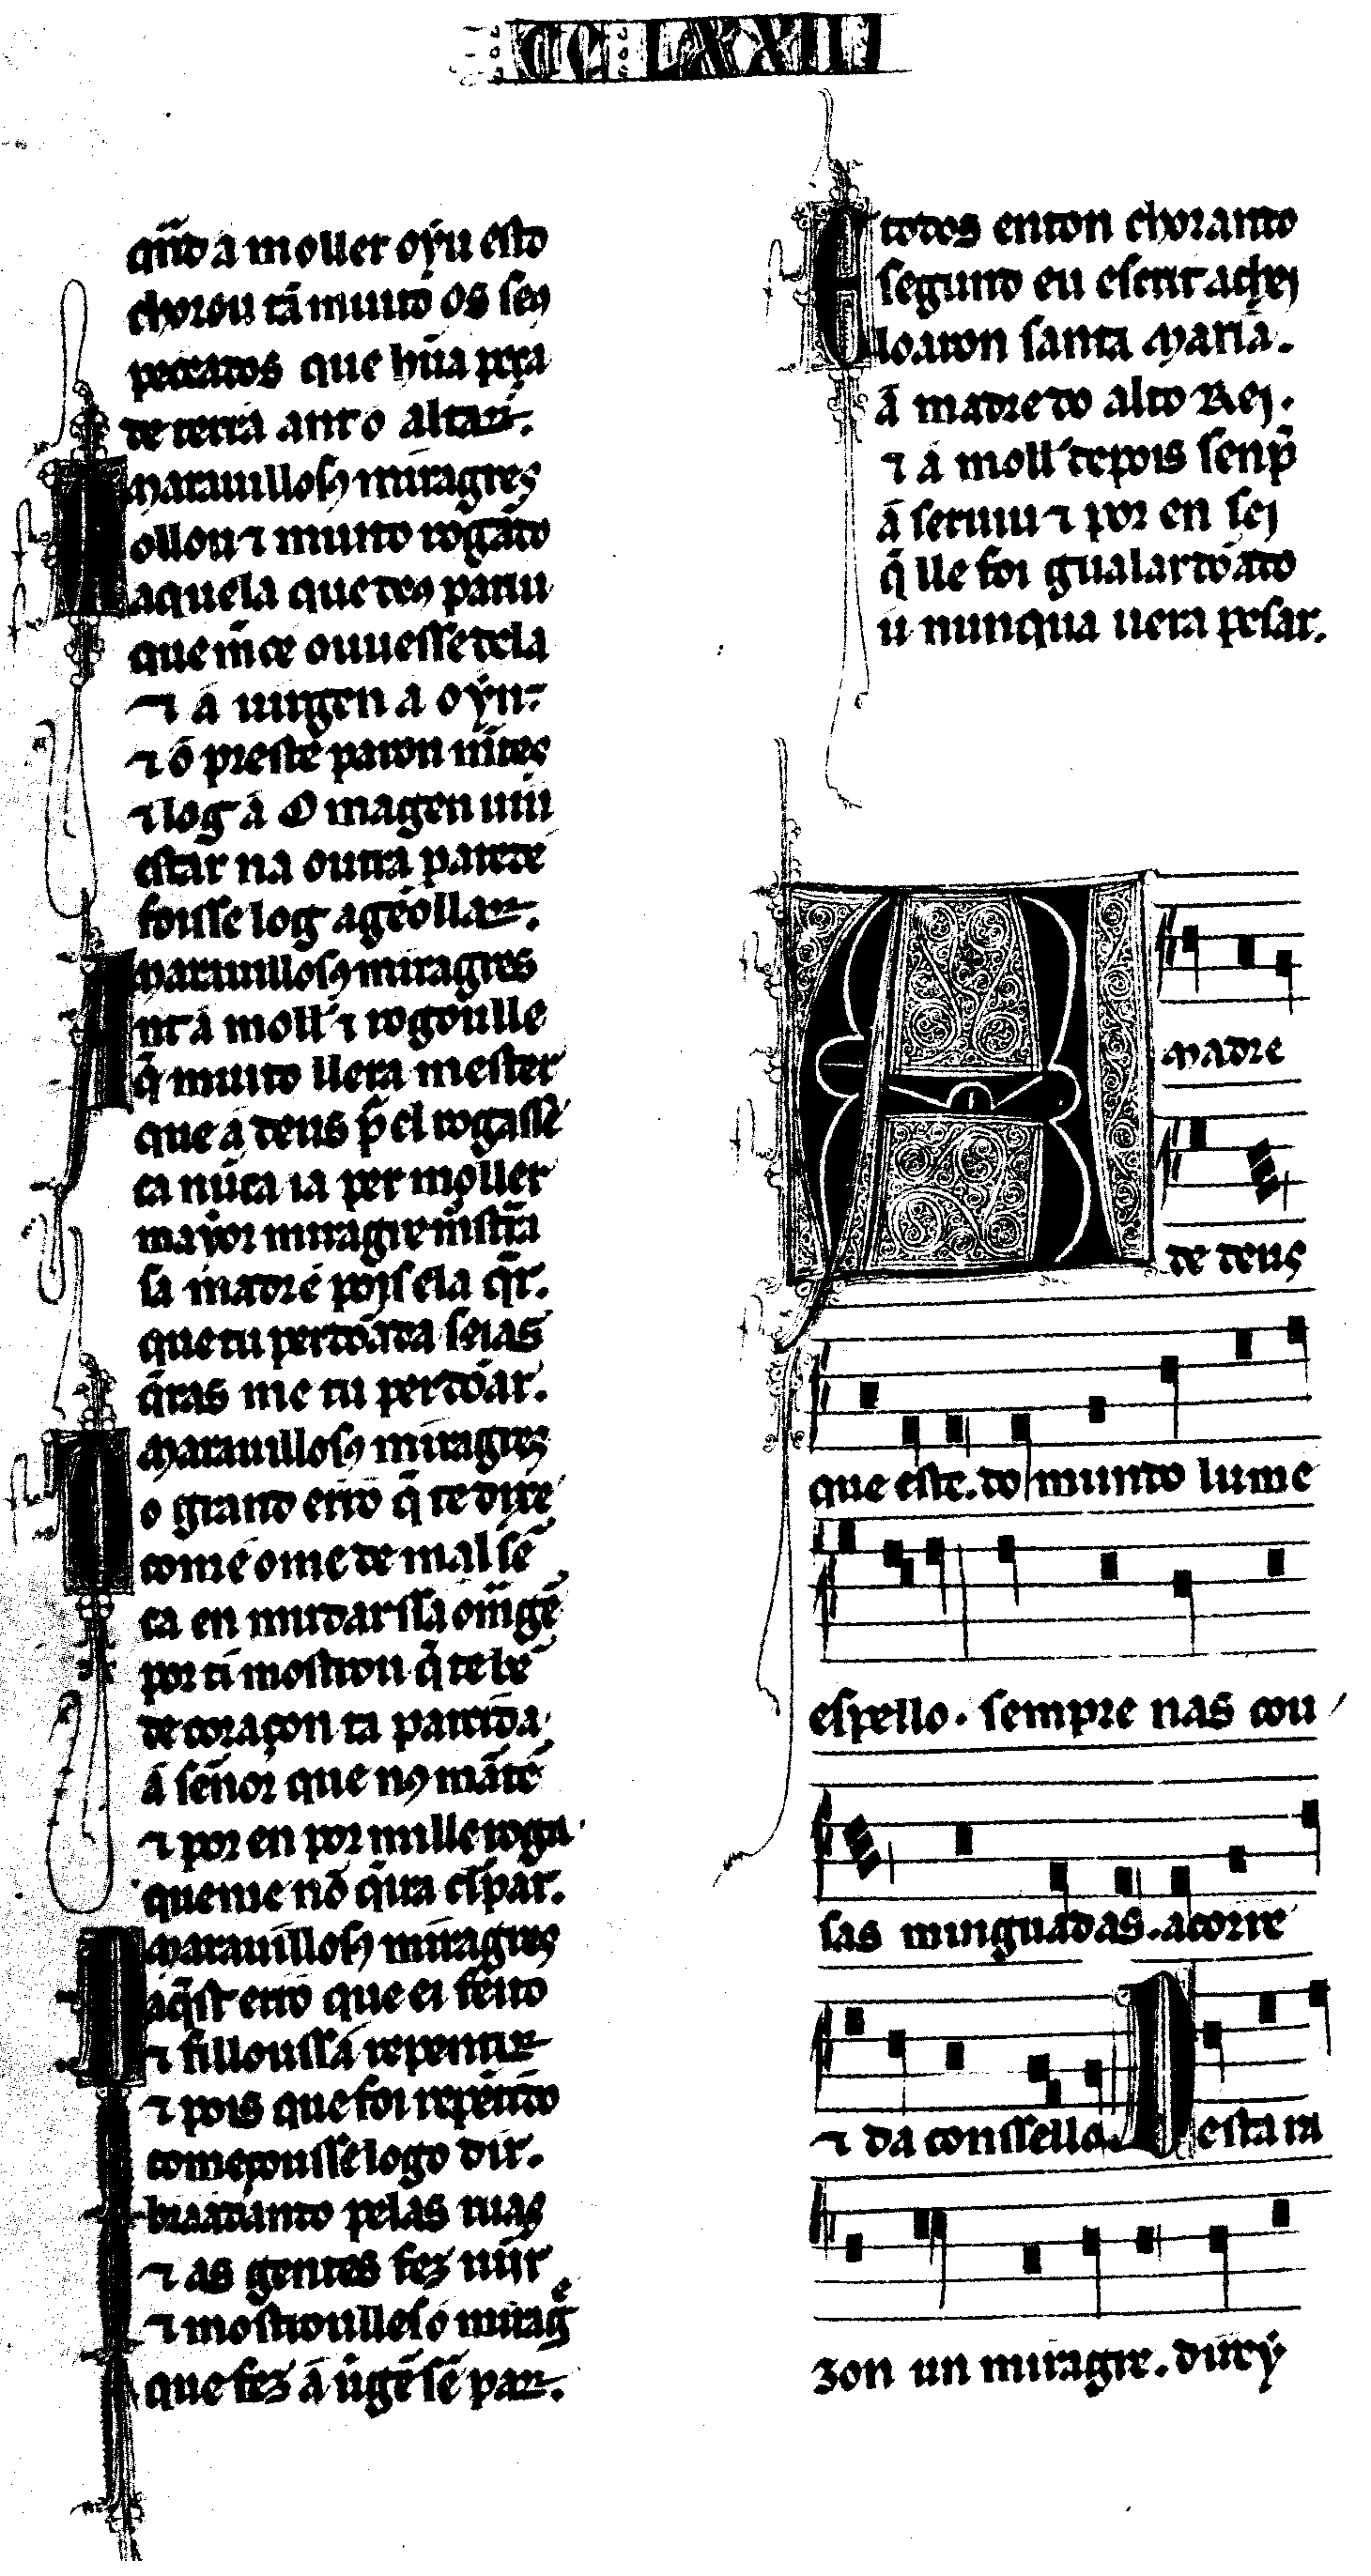 CCLXXII
qñdo a moller oỹu esto
chorou tã muito os seus
peccados que hũa peça
de terra ant o altar.
Marauillosos miragres
Collou ⁊ muito rogãdo
aquela que deus pariu
que m̃ce ouuesse dela
⁊ á uirgen a oỹu.
⁊ o preste parou mẽtes
⁊ log á omagen uiu
estar na outra parede
foisse log agẽollar.
Marauillosos miragres
Ant á moll̃ ⁊ rogoulle
q̃ muito llera mester
que a deus p̃ el rogasse
ca nũca ia per moller
mayor miragre mostra
sa madre poys ela q̃r.
que tu perdõada seias
q̃ras me tu perdõar.
Marauillosos miragres
O grand erro q̃ te dixe
come ome de mal sẽ
ca en mudarssa omagẽ
por ti mostrou q̃ te bẽ
de coraçon ta partida
á sẽnor que nos mãtẽ
⁊ por en por mi lle roga
que me nõ q̃ira desp̃ar.
Marauillosos miragres
Daq̃st erro que ei feito
⁊ fillouss a repentir
⁊ pois que foi repẽtido
começousse logo dir.
braadando pelas ruas
⁊ as gentes fez uĩir
⁊ mostroulles o mirag̃e
que fez á uirgẽ sẽ par.
E todos enton chorando
segund eu escrit achei
loaron santa Maria.
á madre do alto Rei.
⁊ á moll̃ depois senp̃
á seruiu ⁊ por en sei
q̃ lle foi gualardõado
u nunqua uera pesar.
A Madre
de deus
que éste. do mundo lume
espello. sempre nas cou
sas minguadas. acorre
⁊ da conssello. Desta ra
zon un miragre. direy